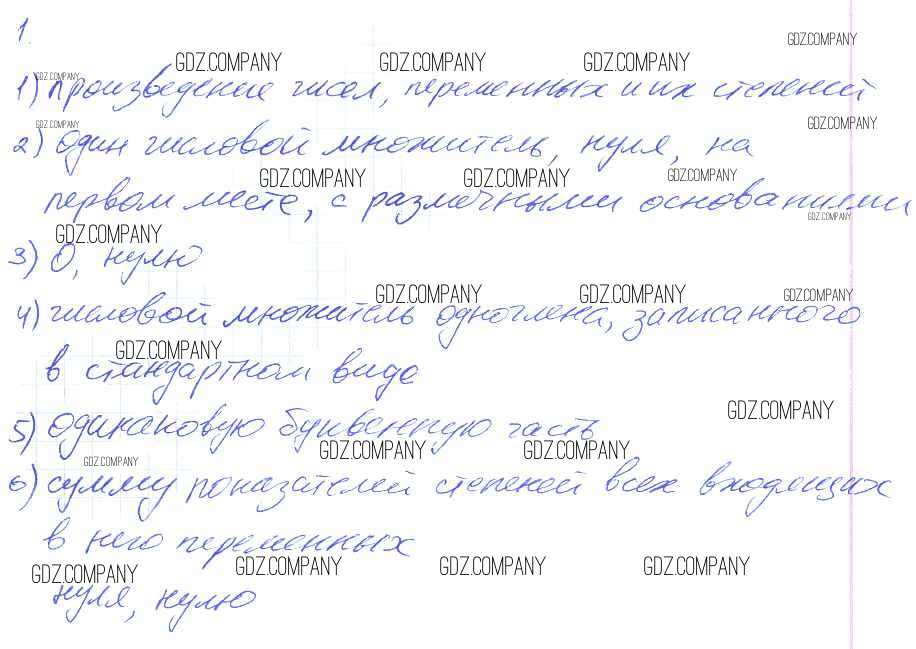 1.
GDZ.COMPANY
GDZ.COMPANY GDZ.COMPANY GDZ.COMPANY
GDZ.COMPANY
1) произведение чисел, переменных и их степеней
GDZ.COMPANY GDZ.COMPANY
2) один числовой множитель, нуля, на
GDZ.COMPANY GDZ.COMPANY GDZ.COMPANY
первом месте, с различными основаниями
GDZ.COMPANY
GDZ.COMPANY
3) 0, нулю
GDZ.COMPANY GDZ.COMPANY GDZ.COMPANY
4) числовой множитель одночлена, записанного
GDZ.COMPANY
в стандартном виде
GDZ.COMPANY
5) одинаковую буквенную часть
GDZ.COMPANY GDZ.COMPANY
GDZ.COMPANY
6) сумму показателей степеней всех входящих
в него переменных
GDZ.COMPANY GDZ.COMPANY GDZ.COMPANY GDZ.COMPANY
нуля, нулю